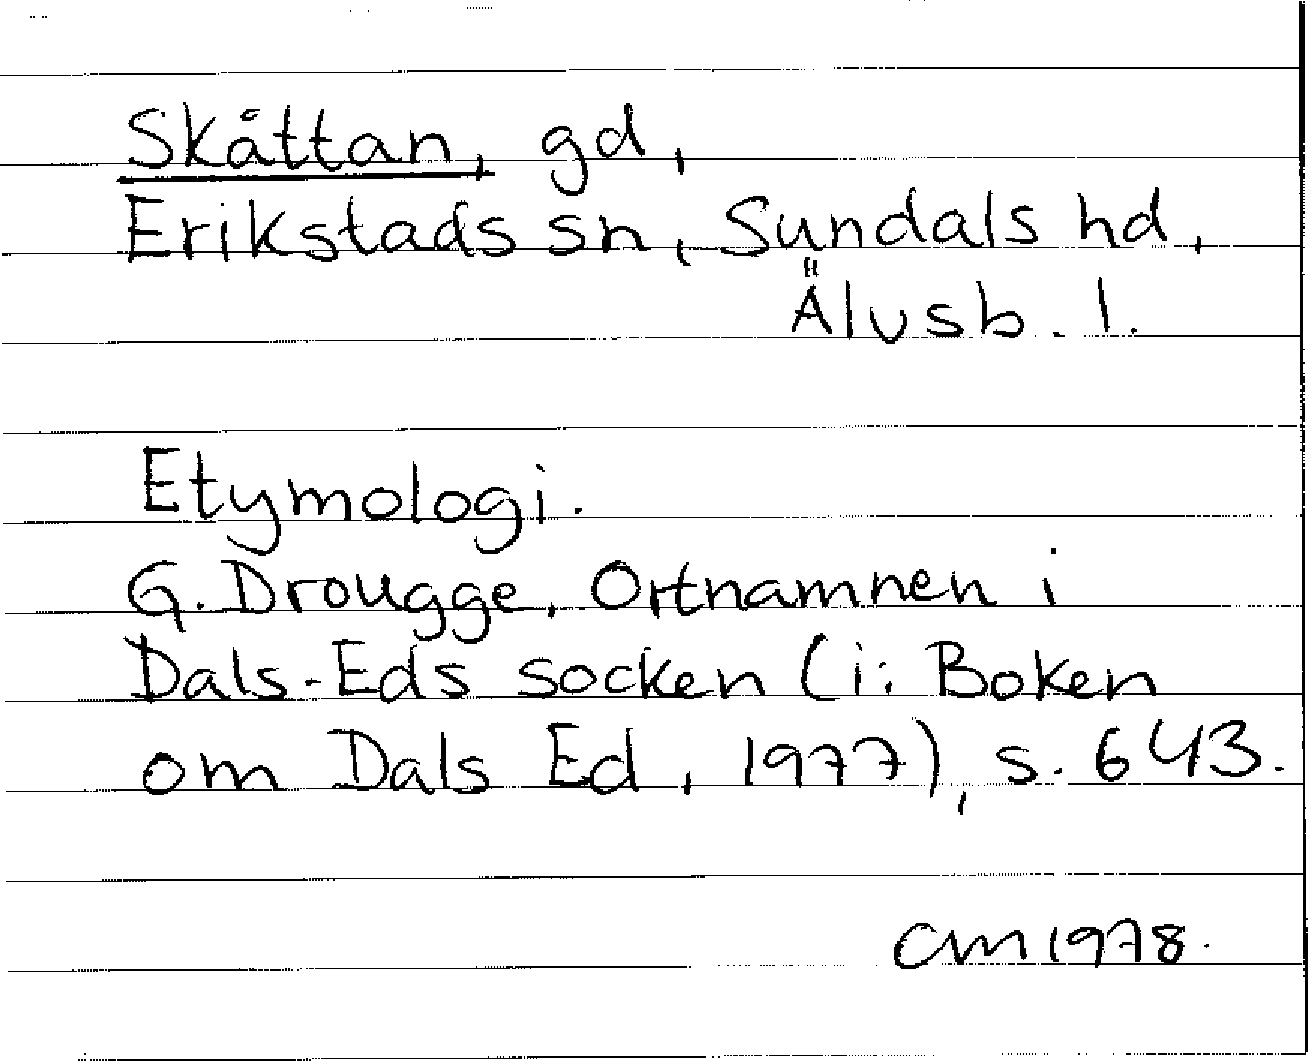 Skåttan, gd,
Erikstads sn, Sundals hd,
Älvsb. l.
Etymologi.
G. Drougge, Ortnamnen i
Dals-Eds socken (i: Boken
om Dals Ed, 1977), s. 643.
CM 1978.